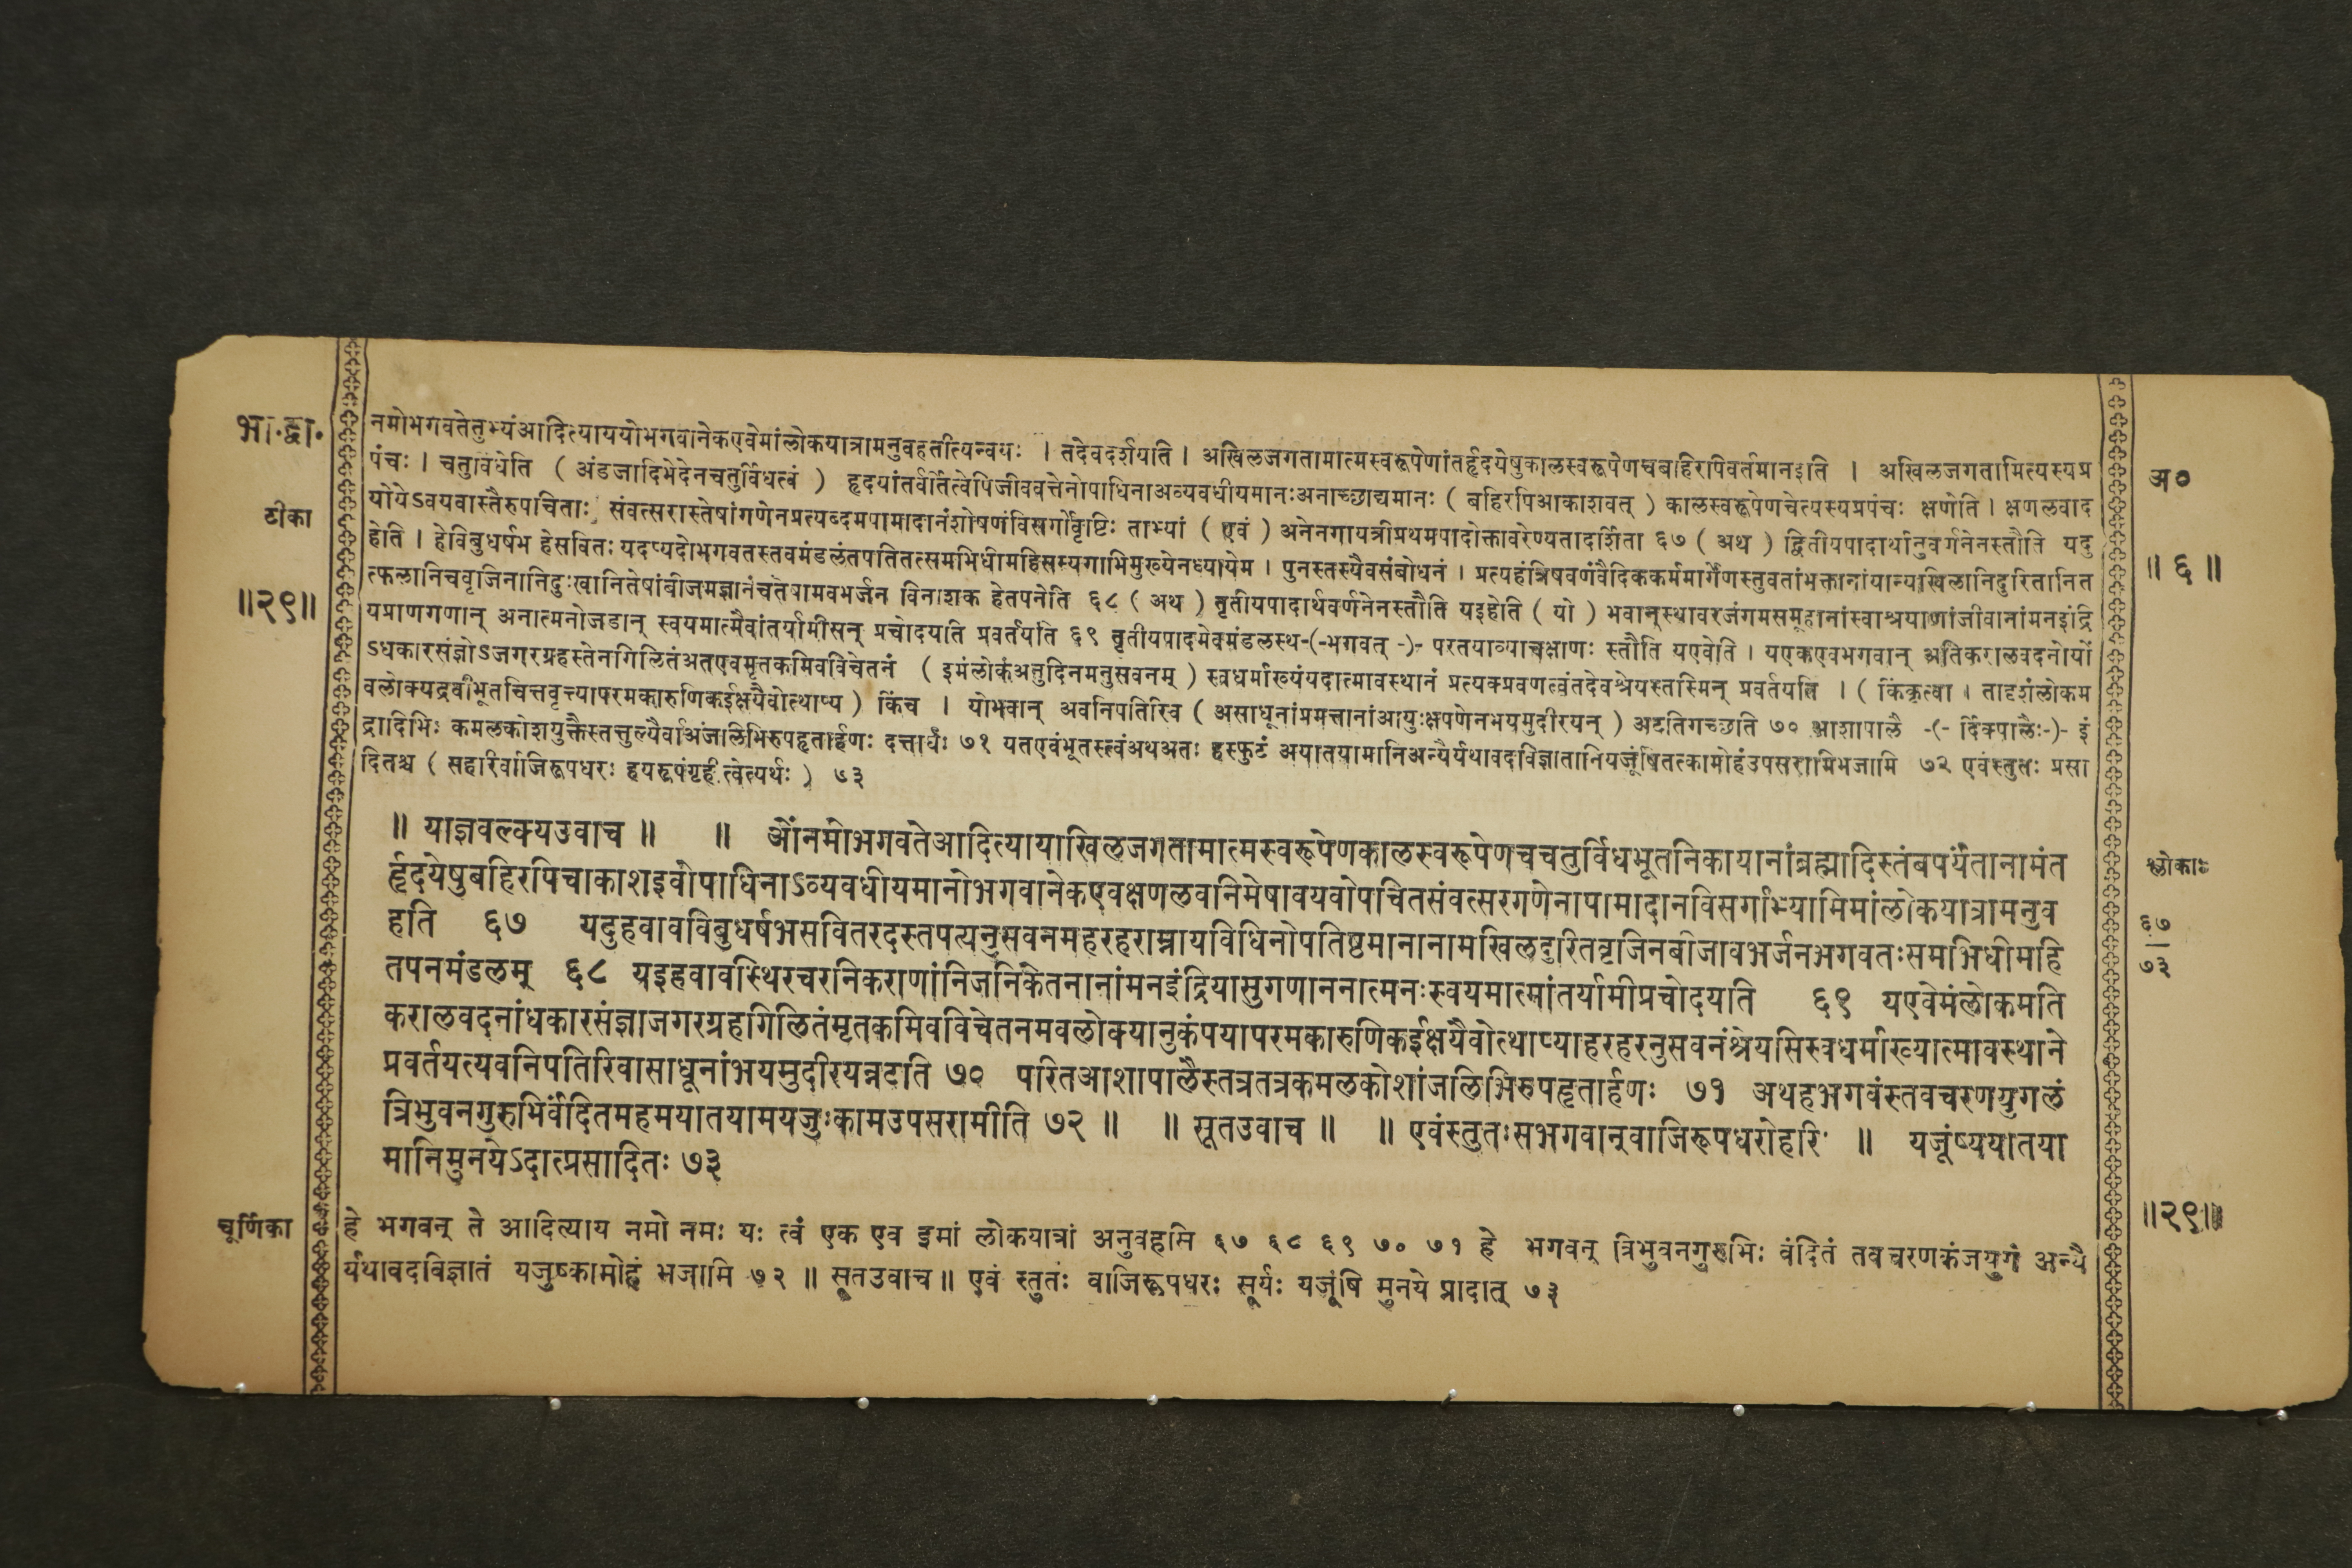 भा.द्वा.
नमोभगवतेतुभ्यंआदित्याययोभगवानेकएवेमांलोकयात्रामनुवहतीत्यन्वयः । तदेवदर्शयति । अखिलजगतामात्मस्वरूपेणांतर्हृदयेषुकालस्वरूपेणचबहिरपिवर्तमानइति । अखिलजगतामित्यस्यप्र
अ०
पंचः । चतुर्विधेति ( अंडजादिभेदेनचतुर्विधत्वं ) हृदयांतर्वर्तित्वेपिजीववत्तेनोपाधिनाअव्यवधीयमानःअनाच्छाद्यमानः ( बहिरपिआकाशवत् ) कालस्वरूपेणचेत्यस्यप्रपंचः क्षणेति । क्षणलवाद
टीका
योयेऽवयवास्तैरुपचिताः संवत्सरास्तेषांगणेनप्रत्यब्दमपामादानंशोषणंविसर्गोवृष्टिः ताभ्यां ( एवं ) अनेनगायत्रीप्रथमपादोक्तावरेण्यतादर्शिता ६७ ( अथ ) द्वितीयपादार्थानुवर्गनेनस्तौति यदु
॥ ६ ॥
होति । हेविबुधर्षभ हेसवितः यदप्यदोभगवतस्तवमंडलंतपतितत्समभिधीमहिसम्यगाभिमुख्येनध्यायेम । पुनस्तस्यैवसंबोधनं । प्रत्यहंत्रिषवणंवैदिककर्ममार्गेणस्तुवतांभक्तानांयान्यखिलानिदुरितानित
॥२९॥
त्फलानिचवृजिनानिदुःखानितेषांबीजमज्ञानंचतेषामवभर्जन विनाशक हेतपनेति ६८ ( अथ ) तृतीयपादार्थवर्णनेनस्तौति यइहोति ( यो ) भवान्स्थावरजंगमसमूहानांस्वाश्रयाणांजीवानांमनइंद्रि
यप्राणगणान् अनात्मनोजडान् स्वयमात्मैवांतर्यामीसन् प्रचोदयति प्रवर्तयति ६९ तृतीयपादमेवमंडलस्थ-(-भगवत् -)- परतयाव्याचक्षाणः स्तौति यएवेति । यएकएवभगवान् अतिकरालवदनोयों
ऽधकारसंज्ञोऽजगरग्रहस्तेनगिलितंअतएवमृतकमिवविचेतनं ( इमंलोकंअनुदिनमनुसवनम् ) स्वधर्माख्यंयदात्मावस्थानं प्रत्यक्प्रवणत्वंतदेवश्रेयस्तस्मिन् प्रवर्तयति । ( किंकृत्वा । तादृशंलोकम
वलोक्यद्रवीभूतचित्तवृत्त्यापरमकारुणिकईक्षयैवोत्थाप्य ) किंच । योभवान् अवनिपतिरिव ( असाधूनांप्रमत्तानांआयुःक्षपणेनभयमुदीरयन् ) अटतिगच्छति ७० आशापालै -(- दिक्पालैः-)- इं
द्रादिभिः कमलकोशयुक्तैस्तत्तुल्यैर्वाअंजलिभिरुपहृतार्हणः दत्तार्घः ७१ यतएवंभूतस्त्वंअथअतः हस्फुटं अयातयामानिअन्यैर्यथावदविज्ञातानियजूंषितत्कामोहंउपसरामिभजामि ७२ एवंस्तुतः प्रसा
दितश्च ( सहारिर्वाजिरूपधरः हयरूपंगृहीत्वेत्यर्थः ) ७३
॥ याज्ञवल्क्यउवाच ॥ ॥ ओंनमोभगवतेआदित्यायाखिलजगतामात्मस्वरूपेणकालस्वरूपेणचचतुर्विधभूतनिकायानांब्रह्मादिस्तंबपर्यंतानामंत
श्लोकाः
र्हृदयेषुबहिरपिचाकाशइवोपाधिनाऽव्यवधीयमानोभगवानेकएवक्षणलवनिमेषावयवोपचितसंवत्सरगणेनापामादानविसर्गाभ्यामिमांलोकयात्रामनुव
६७
हति ६७ यदुहवावविबुधर्षभसवितरदस्तपत्यनुसवनमहरहराम्नायविधिनोपतिष्ठमानानामखिलदुरितवृजिनबीजावभर्जनभगवतःसमभिधीमहि
७३
तपनमंडलम् ६८ यइहवावस्थिरचरनिकराणांनिजनिकेतनानांमनइंद्रियासुगणाननात्मनःस्वयमात्मांतर्यामीप्रचोदयति ६९ यएवेमंलोकमति
करालवदनांधकारसंज्ञाजगरग्रहगिलितंमृतकमिवविचेतनमवलोक्यानुकंपयापरमकारुणिकईक्षयैवोत्थाप्याहरहरनुसवनंश्रेयसिस्वधर्माख्यात्मावस्थाने
प्रवर्तयत्यवनिपतिरिवासाधूनांभयमुदीरयन्नटति ७० परितआशापालैस्तत्रतत्रकमलकोशांजलिभिरुपहृतार्हणः ७१ अथहभगवंस्तवचरणयुगलं
त्रिभुवनगुरुभिर्वंदितमहमयातयामयजुःकामउपसरामीति ७२ ॥ ॥ सूतउवाच ॥ ॥ एवंस्तुतःसभगवान्वाजिरूपधरोहरिः ॥ यजूंष्ययातया
मानिमुनयेऽदात्प्रसादितः ७३
॥२९॥
चूर्णिका
हे भगवन् ते आदित्याय नमो नमः यः त्वं एक एव इमां लोकयात्रां अनुवहसि ६७ ६८ ६९ ७० ७१ हे भगवन् त्रिभुवनगुरुभिः वंदितं तव चरणकंजयुगं अन्यै
र्यथावदविज्ञातं यजुष्कामोहं भजामि ७२ ॥ सूतउवाच ॥ एवं स्तुतः वाजिरूपधरः सूर्यः यजूंषि मुनये प्रादात् ७३